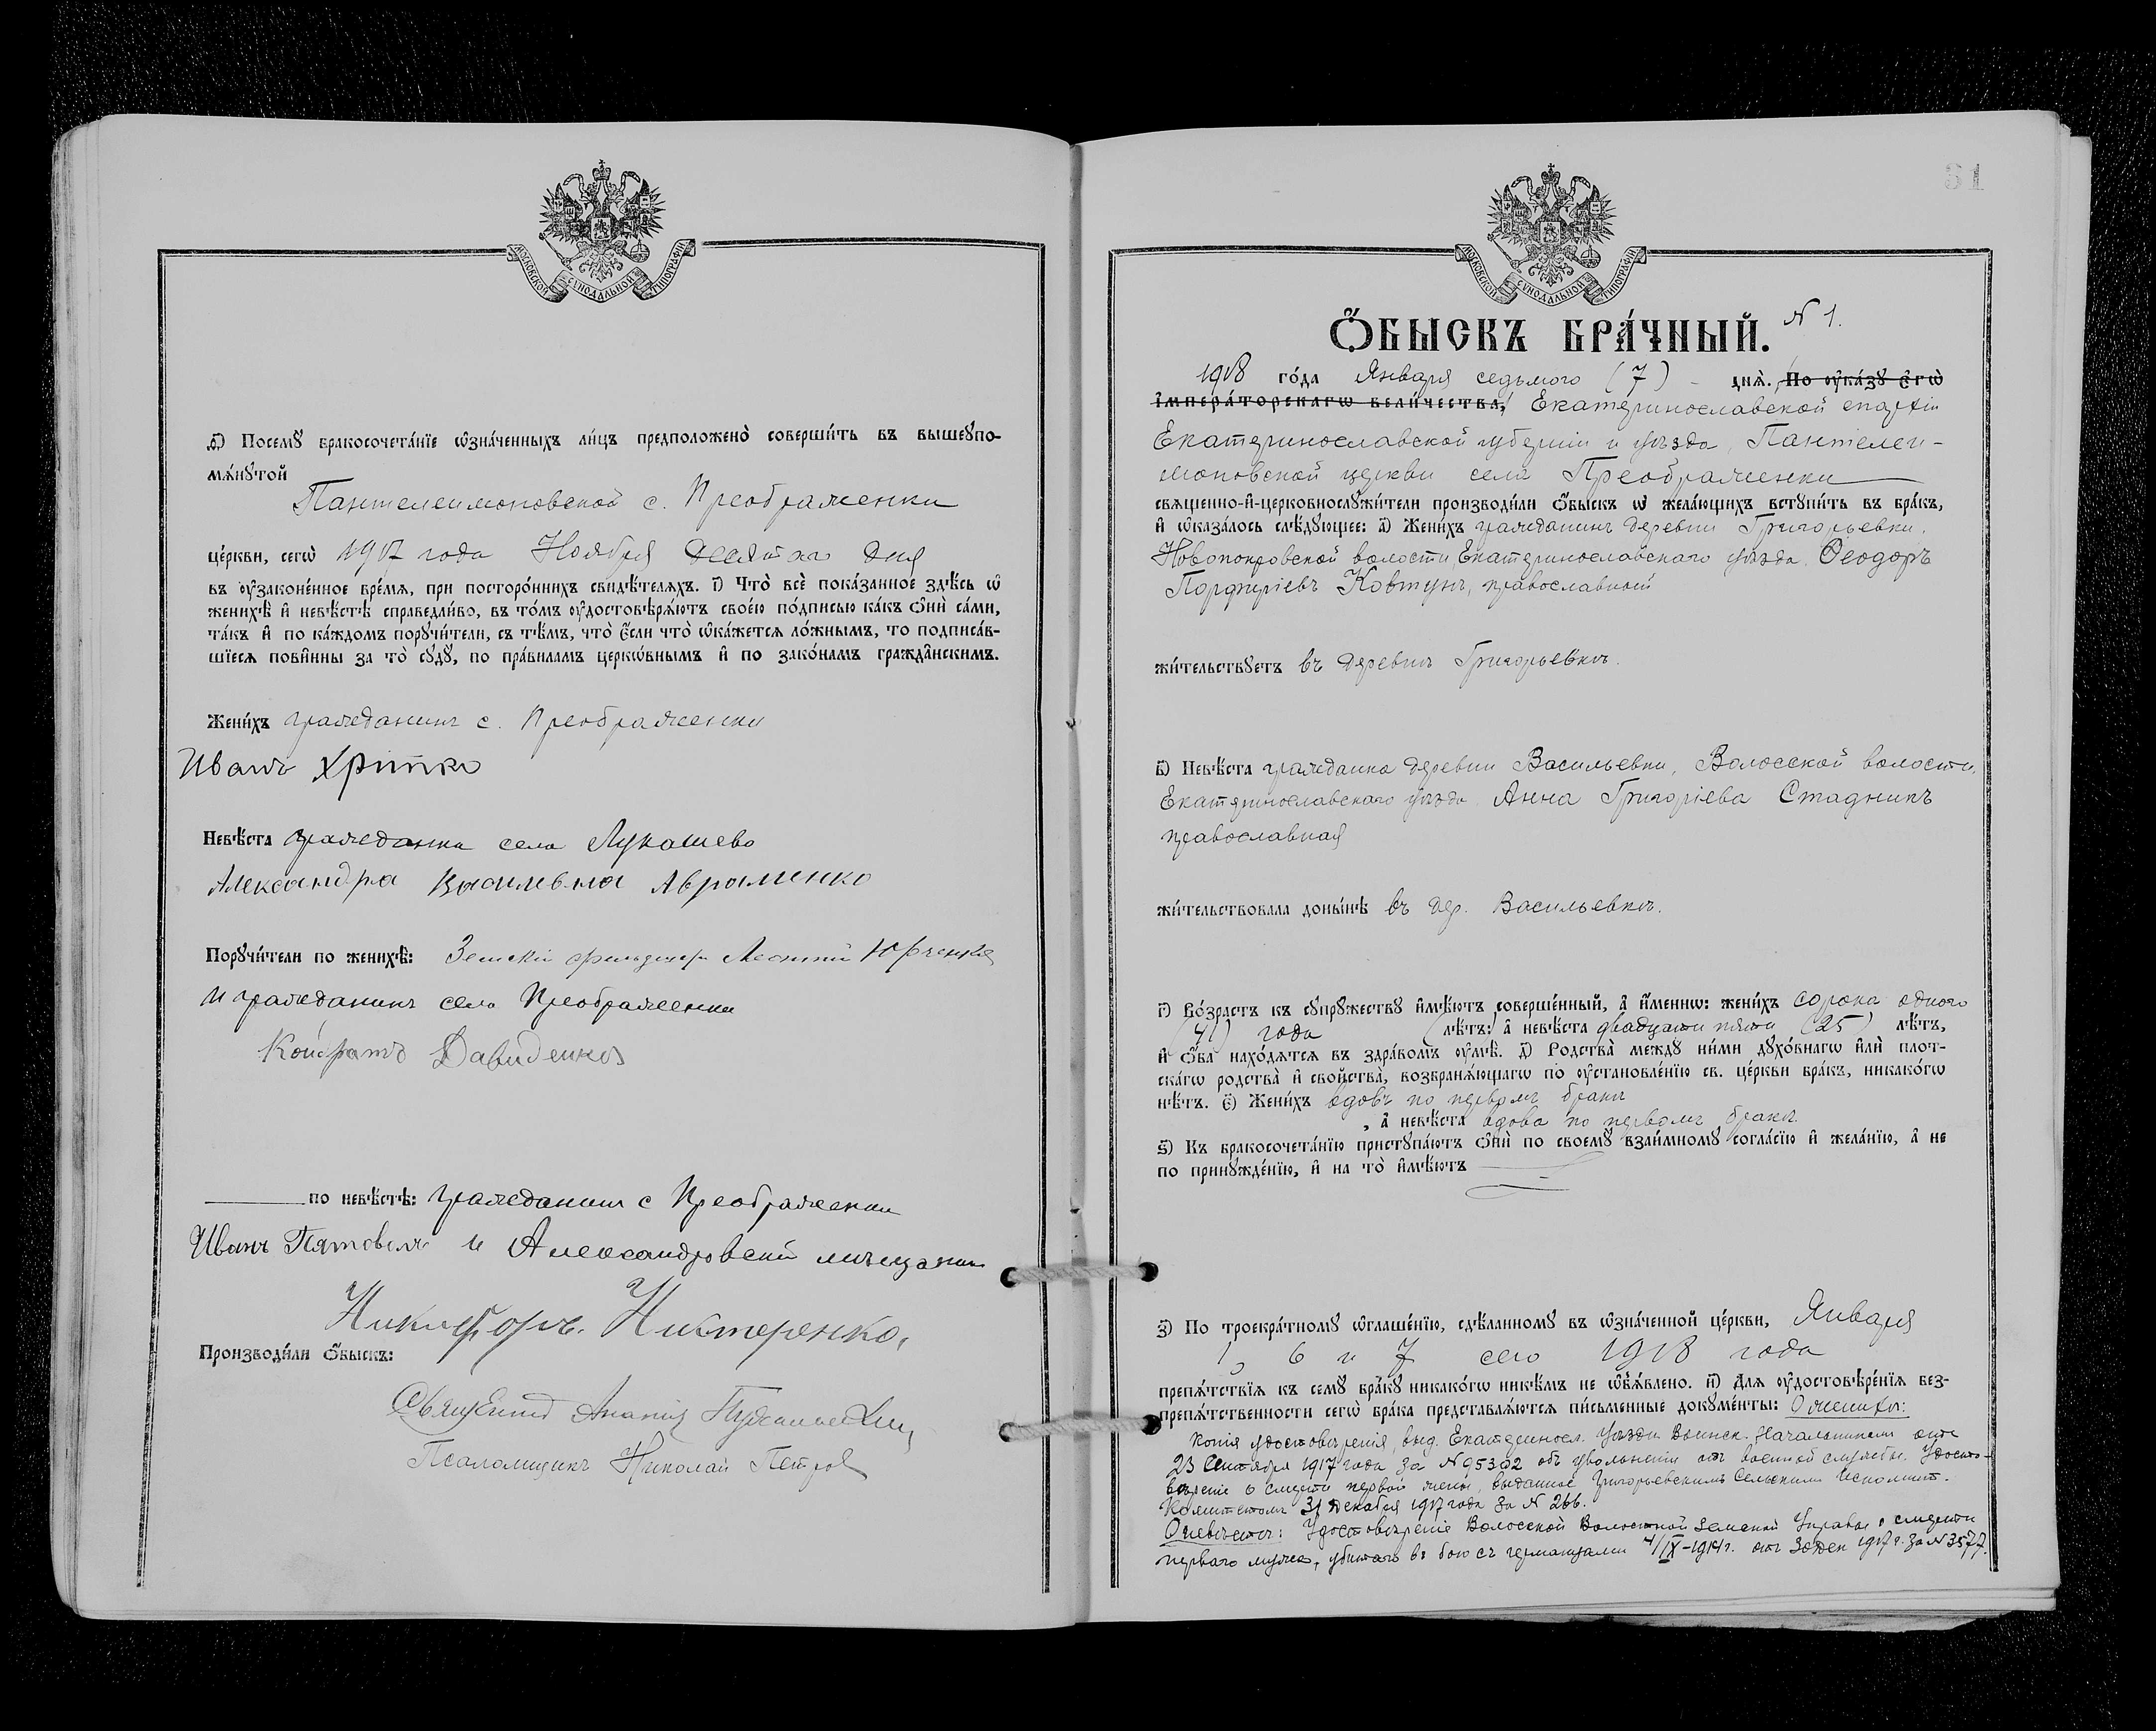 МОСКОВСКОЙ СѴНОДАЛЬНОЙ ТИПОГРАФІИ
ѳ҃) Посемꙋ бракосочета́нїе ѡ҆зна́ченныхъ ли́цъ предположено̀ соверши́ть въ вышеꙋпо-
мѧ́нꙋтой
Пантелеимоновской с. Преображенки
це́ркви, сегѡ̀ 1917 года Ноября десятаго дня
въ ᲂу҆законе́нное вре́мѧ, при посторо́ннихъ свидѣ́телѧхъ. і҃) Что̀ всѐ пока́занное здѣ́сь ѡ҆
женихѣ̀ и҆ невѣ́стѣ справедли́во, въ то́мъ ᲂу҆достовѣрѧ́ютъ свое́ю по́дписью ка́къ ѻ҆нѝ са́ми,
та́къ и҆ по ка́ждомъ порꙋчи́тели, съ тѣ́мъ, что̀ є҆́сли что̀ ѡ҆ка́жетсѧ ло́жнымъ, то подписа́в-
шїесѧ пови́нны за то̀ сꙋдꙋ̀, по пра́виламъ церкѡ́внымъ и҆ по зако́намъ гражда́нскимъ.
Жени́хъ гражданинъ с. Преображенки
Иванъ Хритко
Невѣ́ста гражданка села Лукашево
Александра Васильевна Авраменко
Порꙋчи́тели по женихѣ̀: Земскій фельдшеръ Леонтій Юрченко
и гражданинъ села Преображенки
Кондратъ Давиденко
по невѣ́стѣ: гражданинъ с Преображенки
Иванъ и Александровскій мѣщанин
Никифоръ. Нистеренко.
Производи́ли ѻ҆́быскъ:
Священникъ Ананій
Псаломщикъ Николай Петров
61
МОСКОВСКОЙ СѴНОДАЛЬНОЙ ТИПОГРАФІИ
Ѻ҆́БЫСКЪ БРА́ЧНЫЙ. N 1.
1918 го́да Января седьмого (7) - днѧ̀. По ᲂу҆ка́зꙋ є҆гѡ̀
і҆мпера́торскагѡ вели́чества, Екатеринославской епархіи
Екатеринославской губерніи и уѣзда, Пантелеи-
моновской церкви села Преображенки
свѧще́нно-и҆-церковнослꙋжи́тели производи́ли ѻ҆́быскъ ѡ҆ жела́ющихъ встꙋпи́ть въ бра́къ,
и҆ ѡ҆каза́лось слѣ́дꙋющее: а҃) Жени́хъ гражданинъ деревни Григорьевки,
Новопокровской волости, Екатеринославскаго уѣзда, Ѳеодоръ
Порфиріевъ Ковтунъ, православный
жи́тельствꙋетъ въ деревнѣ Григорьевкѣ.
в҃) Невѣ́ста гражданка деревни Васильевки, Волосской волости,
Екатеринославскаго уѣзда Анна Григоріева Стадникъ
православная
жи́тельствовала доны́нѣ въ дер. Васильевкѣ.
г҃) Во́зрастъ къ сꙋпрꙋ́жествꙋ и҆мѣ́ютъ соверше́нный, а҆ и҆́меннѡ: жени́хъ сорока одного
(41) года лѣ́тъ: а҆ невѣ́ста двадцати пяти (25) лѣ́тъ,
и҆ ѻ҆́ба нахо́дѧтсѧ въ здра́вомъ ᲂу҆мѣ̀. д҃) Родства̀ междꙋ̀ ни́ми дꙋхо́внагѡ и҆лѝ плот-
ска́гѡ родства̀ и҆ сво́йства, возбранѧ́ющагѡ по ᲂу҆становле́нїю св. це́ркви бра́къ, никако́гѡ
нѣ́тъ. є҃) Жени́хъ вдовъ по первомъ бракѣ
, а҆ невѣ́ста вдова по первомъ бракѣ.
ѕ҃) Къ бракосочета́нїю пристꙋпа́ютъ ѻ҆нѝ по своемꙋ̀ взаи́мномꙋ согла́сїю и҆ жела́нїю, а҆ не
по принꙋжде́нїю, и҆ на то̀ и҆мѣ́ютъ
з҃) По троекра́тномꙋ ѡ҆глаше́нїю, сдѣ́ланномꙋ въ ѡ҆зна́ченной це́ркви, Января
1, 6 и 7 сего 1918 года
препѧ́тствїѧ къ семꙋ̀ бра́кꙋ никако́гѡ никѣ́мъ не ѡ҆б̾ѧ́влено. и҃) Длѧ̀ ᲂу҆достовѣре́нїѧ без-
препѧ́тственности сегѡ̀ бра́ка представлѧ́ютсѧ пи́сьменные докꙋме́нты: О женихѣ:
копія удостовѣренія, выд. Екатериносл. Уѣздн. Воинск. Начальникомъ отъ
23 Сентября 1917 года за N 95302 объ увольненіи отъ военной службы. Удосто-
вѣреніе о смерти первой жены, выданное Григорьевскимъ Сельскимъ Исполнит.
Комитетомъ 31 декабря 1917 года за N 266.
О невѣстѣ: Удостовѣреніе Волосской Волостной Земской Управы о смерти
перваго мужа, убитаго въ бою съ германцами 4/IX-1914 г. отъ 30 дек 1917 г. за N 3577.